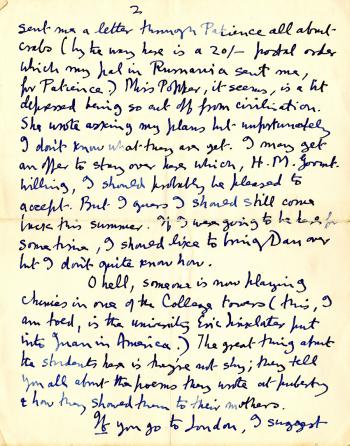 2
sent me a letter through Patience all about
crabs (by the way here is a 20/- postal order
which my pal in Rumania sent me,
for Patience.) Miss Popper, it seems, is a bit
depressed being so cut off from civilisation.
She wrote asking my plans but unfortunately
I don't know what they are yet. I may get
an offer to stay over here which, H.M. Govmt.
willing, I should probably be pleased to
accept. But I guess I should still come
back this summer. If I was going to be here for
sometime, I should like to bring Dan over
but I don't quite know how.
O hell, someone is now playing
chimes in one of the College towers (this, I
am told, is the university Eric Linklater put
into Juan in America.) The great thing about
the students here is they're not shy; they tell
you all about the poems they wrote at puberty
& how they showed them to their mothers.
If you go to London, I suggest